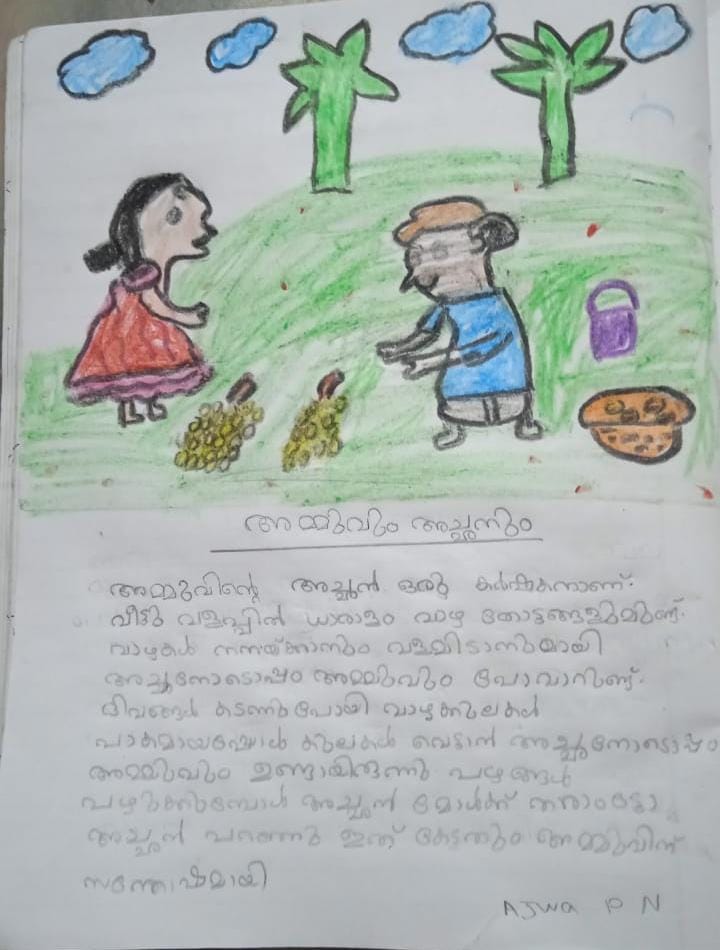 അമ്മുവും അച്ഛനും
അമ്മുവിന്റെ അച്ഛൻ ഒരു കർഷകനാണ്.
വീട്ടു വളപ്പിൽ ധാരാളം വാഴ തോട്ടങ്ങളുമുണ്ട്.
വാഴകൾ നനയ്ക്കാനും വളമിടാനുമായി
അച്ഛനോടൊപ്പം അമ്മുവും പോവാറുണ്ട്.
ദിവങ്ങൾ കടന്നുപോയി വാഴക്കുലകൾ
പാകമായപ്പോൾ കുലകൾ വെട്ടാൻ അച്ഛനോടൊപ്പം
അമ്മുവും ഉണ്ടായിരുന്നു പഴങ്ങൾ
പഴുക്കുമ്പോൾ അച്ഛൻ മോൾക്ക് തരാംട്ടോ
അച്ഛൻ പറഞ്ഞു ഇത് കേട്ടതും അമ്മുവിന്
സന്തോഷമായി
AJWa P N